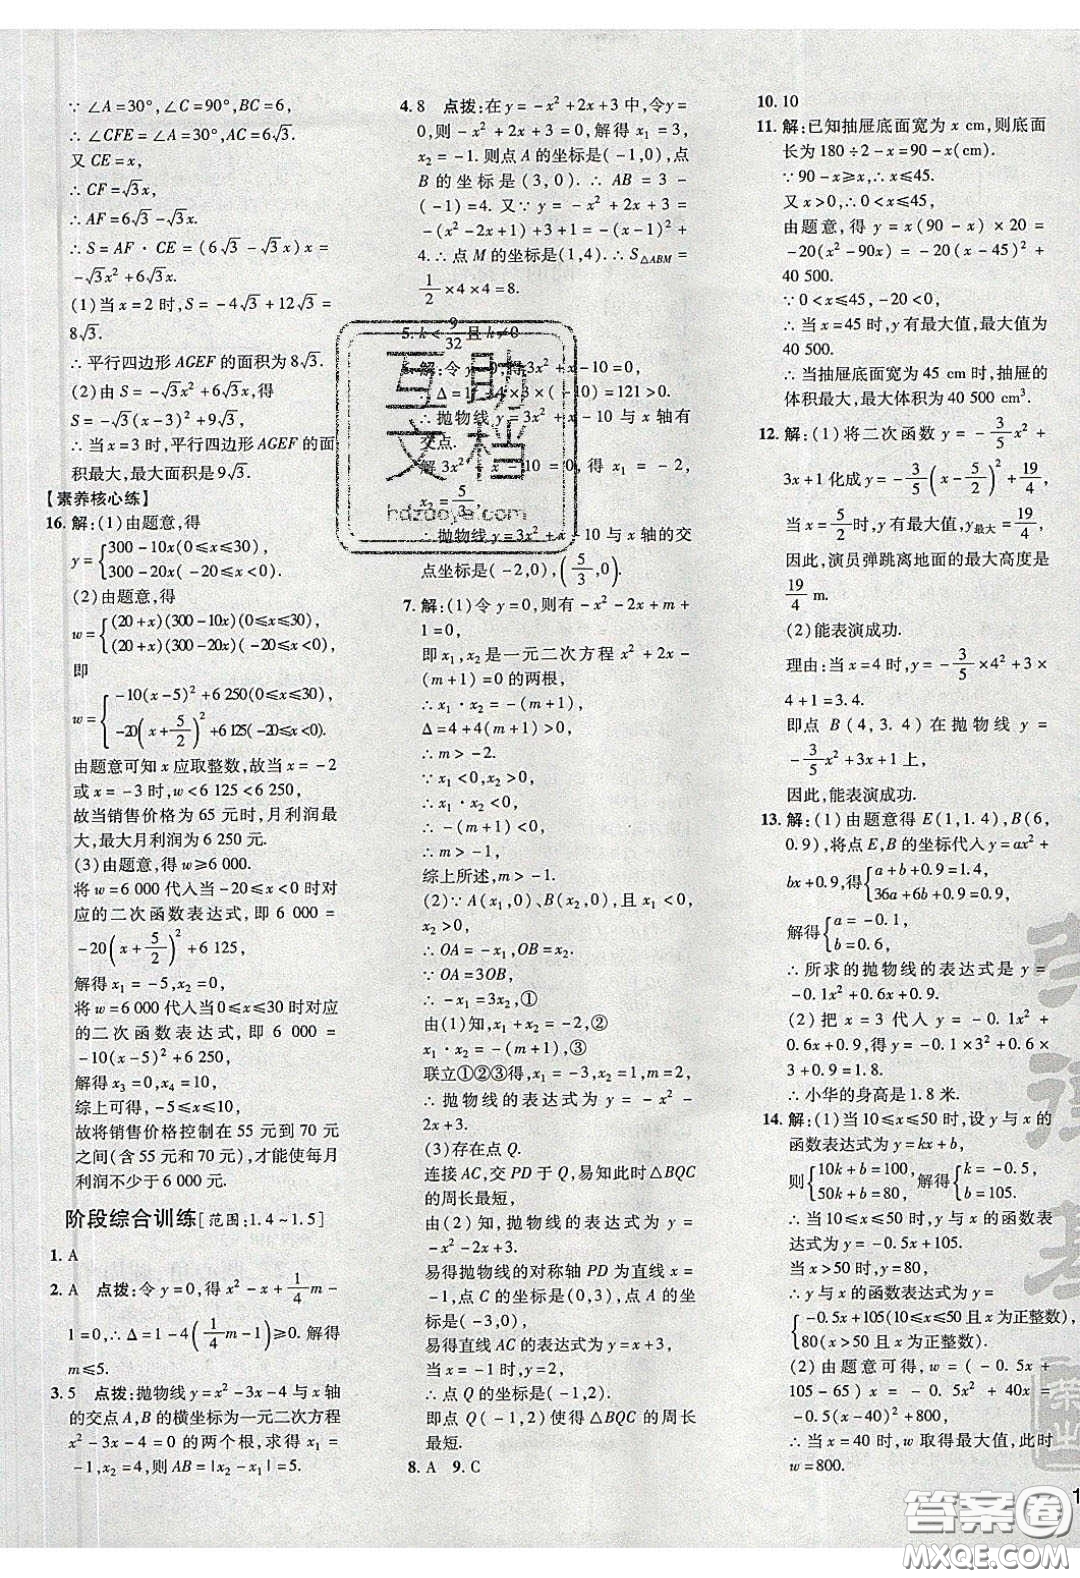 ∵ ∠A=30°,∠C=90°,BC=6,
∴ ∠CFE=∠A=30°,AC=6√3.
又 CE=x,
∴ CF=√3x,
∴ AF=6√3-√3x.
∴ S=AF·CE=(6√3-√3x)x=
-√3x²+6√3x.
(1)当 x=2 时,S=-4√3+12√3=
8√3.
∴ 平行四边形 AGEF 的面积为 8√3.
(2)由 S=-√3x²+6√3x,得
S=-√3(x-3)²+9√3,
∴ 当 x=3 时,平行四边形 AGEF 的面
积最大,最大面积是 9√3.
【素养核心练】
16. 解:(1)由题意,得
y={300-10x(0≤x≤30),
300-20x(-20≤x<0).
(2)由题意,得
w={(20+x)(300-10x)(0≤x≤30)
(20+x)(300-20x)(-20≤x<0),
即
w={-10(x-5)²+6 250(0≤x≤30)
-20(x+5/2)²+6 125(-20≤x<0).
由题意可知 x 应取整数,故当 x=-2
或 x=-3 时,w<6 125<6 250,
故当销售价格为 65 元时,月利润最
大,最大月利润为 6 250 元.
(3)由题意,得 w≥6 000.
将 w=6 000 代入当-20≤x<0 时对
应的二次函数表达式,即 6 000=
-20(x+5/2)²+6 125,
解得 x₁=-5,x₂=0,
将 w=6 000 代入当 0≤x≤30 时对应
的二次函数表达式,即 6 000=
-10(x-5)²+6 250,
解得 x₃=0,x₄=10,
综上可得,-5≤x≤10,
故将销售价格控制在 55 元到 70 元
之间(含 55 元和 70 元),才能使每月
利润不少于 6 000 元.
阶段综合训练[范围:1.4~1.5]
1. A
2. A 点拨:令 y=0,得 x²-x+1/4m-
1=0,∴ Δ=1-4(1/4m-1)≥0. 解得
m≤5.
3. 5 点拨:抛物线 y=x²-3x-4 与 x 轴
的交点 A,B 的横坐标为一元二次方程
x²-3x-4=0 的两个根,求得 x₁=
-1,x₂=4,则 AB=|x₂-x₁|=5.
4. 8 点拨:在 y=-x²+2x+3 中,令 y=
0,则-x²+2x+3=0,解得 x₁=3,
x₂=-1. 则点 A 的坐标是(-1,0),点
B 的坐标是(3,0). ∴ AB=3-
(-1)=4. 又∵ y=-x²+2x+3=
-(x²-2x+1)+3+1=-(x-1)²+
4.∴ 点 M 的坐标是(1,4).∴ S△ABM=
1/2×4×4=8.
5. k<9/32且 k≠0
6. 解:令 y=0,得 3x²+x-10=0,
∵ Δ=1²-4×3×(-10)=121>0.
∴ 抛物线 y=3x²+x-10 与 x 轴有
交点.
解 3x²+x-10=0,得 x₁=-2,
x₂=5/3.
∴ 抛物线 y=3x²+x-10 与 x 轴的交
点坐标是(-2,0),(5/3,0).
7. 解:(1)令 y=0,则有-x²-2x+m+
1=0,
即 x₁,x₂是一元二次方程 x²+2x-
(m+1)=0 的两根,
∴ x₁·x₂=-(m+1),
Δ=4+4(m+1)>0,
∴ m>-2.
∵ x₁<0,x₂>0,
∴ x₁·x₂<0,
∴ -(m+1)<0,
∴ m>-1,
综上所述,m>-1.
(2)∵ A(x₁,0)、B(x₂,0),且 x₁<0,
x₂>0,
∴ OA=-x₁,OB=x₂.
∵ OA=3OB,
∴ -x₁=3x₂,①
由(1)知,x₁+x₂=-2,②
x₁·x₂=-(m+1),③
联立①②③得,x₁=-3,x₂=1,m=2,
∴ 抛物线的表达式为 y=-x²-
2x+3.
(3)存在点 Q.
连接 AC,交 PD 于 Q,易知此时△BQC
的周长最短,
由(2)知,抛物线的表达式为 y=
-x²-2x+3,
易得抛物线的对称轴 PD 为直线 x=
-1,点 C 的坐标是(0,3),点 A 的坐标是
(-3,0),
易得直线 AC 的表达式为 y=x+3,
当 x=-1 时,y=2,
∴ 点 Q 的坐标是(-1,2),
即点 Q(-1,2)使得△BQC 的周长
最短.
8. A 9. C
10. 10
11. 解:已知抽屉底面宽为 x cm,则底面
长为 180÷2-x=90-x(cm).
∵ 90-x≥x,∴ x≤45,
又 x>0,∴ 0<x≤45,
由题意,得 y=x(90-x)×20=
-20(x²-90x)=-20(x-45)²+
40 500.
∵ 0<x≤45,-20<0,
∴ 当 x=45 时,y 有最大值,最大值为
40 500.
∴ 当抽屉底面宽为 45 cm 时,抽屉的
体积最大,最大体积为 40 500 cm³.
12. 解:(1)将二次函数 y=-3/5x²+
3x+1 化成 y=-3/5(x-5/2)²+19/4,
当 x=5/2时,y 有最大值,y最大=19/4,
因此,演员弹跳离地面的最大高度是
19/4 m.
(2)能表演成功.
理由:当 x=4 时,y=-3/5×4²+3×
4+1=3.4.
即点 B(4,3.4)在抛物线 y=
-3/5x²+3x+1 上,
因此,能表演成功.
13. 解:(1)由题意得 E(1,1.4),B(6,
0.9),将点 E,B 的坐标代入 y=ax²+
bx+0.9,得{a+b+0.9=1.4,
36a+6b+0.9=0.9,
解得{a=-0.1,
b=0.6,
∴ 所求的抛物线的表达式是 y=
-0.1x²+0.6x+0.9.
(2)把 x=3 代入 y=-0.1x²+
0.6x+0.9,得 y=-0.1×3²+0.6×
3+0.9=1.8.
∴ 小华的身高是 1.8 米.
14. 解:(1)当 10≤x≤50 时,设 y 与 x 的
函数表达式为 y=kx+b,
则{10k+b=100,
50k+b=80, 解得{k=-0.5,
b=105.
∴ 当 10≤x≤50 时,y 与 x 的函数表
达式为 y=-0.5x+105.
∴ y 与 x 的函数表达式为 y=
{-0.5x+105(10≤x≤50 且 x 为正整数),
80(x>50 且 x 为正整数).
(2)由题意可得,w=(-0.5x+
105-65)x=-0.5x²+40x=
-0.5(x-40)²+800,
∴ 当 x=40 时,w 取得最大值,此时
w=800.
互助
文档
hdzaoye.com
答案圈
MXQE.COM
1